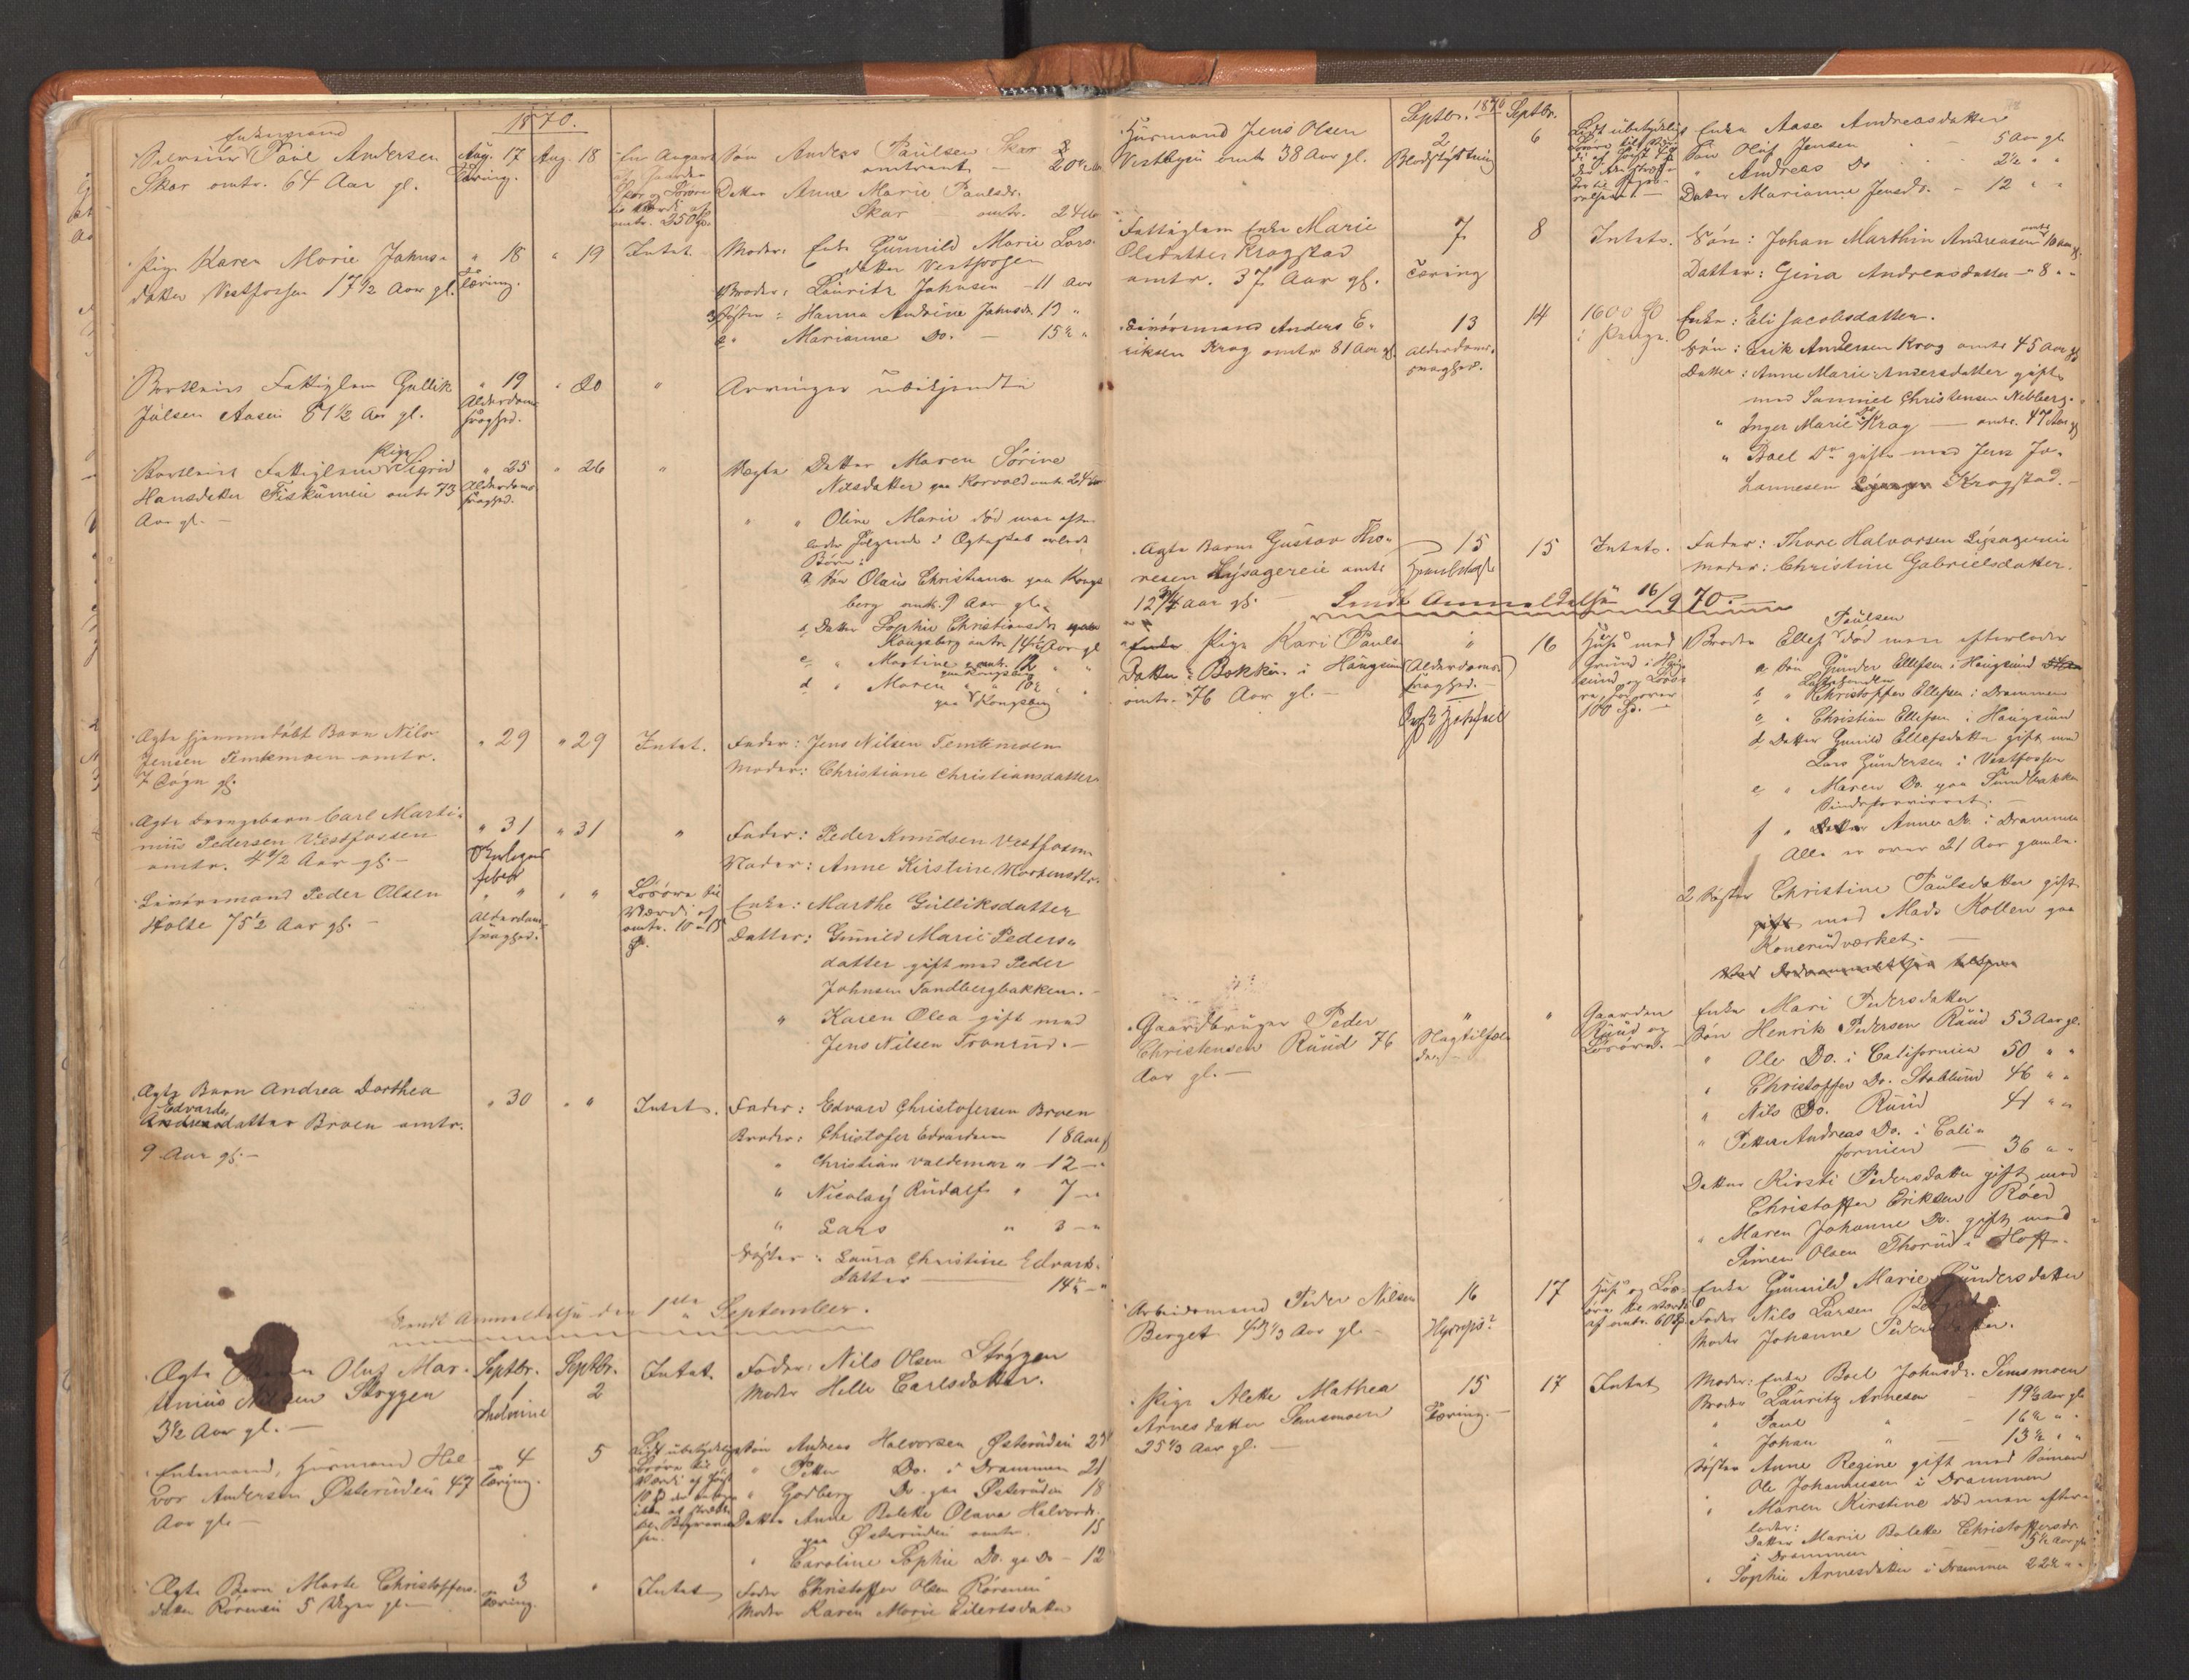 1870.
Enkemand
Paul Andersen
Skar omtr. 64 Aar gl.
Aug. 17
Tæring.
Aug. 18
Søn Anders Paulsen Skar
omtrent
Datter Anne Marie Paulsdr.
Skar omtr. 24
omtr. 250
Pige Karen Marie Johns-
datter Vestfossen 17 1/2 Aar gl.
" 18
Tæring.
" 19
Intet
Moder: Enke Gunnild Marie Lars-
datter Vestfossen
Broder: Lauritz Johnsen - 11 Aar
Søster: Hanna Andrine Johnsdr. 19 "
" Marianne Do. - 15 1/2 "
Bortleiet Fattiglem Gullik
Julsen Aasen 81 1/2 Aar gl.
" 19
Alderdoms
svaghed.
" 20
"
Arvinger ubekjendte
Pige
Bortleiet Fattiglem Sigrid
Hansdatter Fiskumeie omtr 73
Aar gl. -
" 25
Alderdoms
svaghed.
" 26
"
Uægte Datter Maren Sørine
Nilsdatter paa Korvold omtr. 24
" " Oline Marie død men efter-
lader følgende i Ægteskab avlede
Børn:
a Søn Olaus Christiansen paa Kongs
berg omtr. 9 Aar gl.
b, Datter Sophie Christiansdr
Kongsberg omtr. 14 1/2 Aar gl
c " Martine omtr. 12 " "
paa Kongsberg
d " Maren " " 10 1/2 " "
paa Kongsberg
Ægte hjemmedøbt Barn Nils
Jensen Temtemoen omtr.
7 Døgn gl.
" 29
" 29
Intet.
Fader: Jens Nilsen Temtemoen
Moder: Christiane Christiansdatter
Ægte Drengebarn Carl Marti-
nius Pedersen Vestfossen
omtr. 4 1/2 Aar gl. -
" 31
feber
" 31
"
Fader: Peder Knudsen Vestfossen
Moder: Anne Kirstine Mortensdtr.
Livørsmand Peder Olsen
Holte 75 1/2 Aar gl. -
" "
Alderdoms
svaghed.
" "
Løsøre til
Værdi af
omtr. 10 a 15
Enke: Marthe Gulliksdatter
Datter: Gunild Marie Peders-
datter gift med Peder
Johnsen Sandbergbakken. -
" Karen Olea gift med
Jens Nilsen Tranrud. -
Ægte Barn Andrea Dorthea
Edvards
datter Broen omtr.
9 Aar gl. -
" 30
" "
Intet.
Fader: Edvard Christofersen Broen
Broder: Christofer Edvardsen 18 Aar gl
" Christian Valdemar " 12 - "
" Nicolay Rudolf " 7 - "
" Lars " 3 - "
Søster: Laura Christine Edvards-
datter 14 1/2 - "
Sendt Anmeldelse den 1ste September.
Ægte Barn Oluf Mar-
tinius Nilsen Stryggen
3 1/2 Aar gl. -
Septbr.
1
Septbr.
2
Intet.
Fader: Nils Olsen Stryggen
Moder Helle Carlsdatter.
Enkemand, Husmand Hal-
vor Andersen Østerudeie 47
Aar gl. -
4
Tæring.
5
Lidt ubetydelig
Løsøre til
Søn Andreas Halvorsen Østerudeie 23
" Petter Do. i Drammen 21
" Godberg Do. paa Østeruden 18
Datter Anne Bolette Olava Halvorsdr
paa Østerudeie omtr. 15
" Caroline Sophie Do. paa Do - 12
Ægte Barn Marte Christoffers-
datter Røreneie 5 Uger gl. -
3
Tæring.
"
Intet
Fader Christoffer Olsen Røreneie
Moder Karen Marie Eilertsdatter
Husmand Jens Olsen
Vestbyeie omtr 38 Aar gl.
Septbr. 1870 Septbr.
2
Blodstyrtning
6
Lidt ubetydelig
Enke Aase Andreasdatter
Søn Oluf Jensen - 5 Aar gl
" Andreas Do 2 1/2 " "
Datter Marianne Jensdr. - 12 " "
Fattiglem Enke Marie
Olesdatter Kragstad
omtr. 37 Aar gl.
7
Tæring
8
Intet.
Søn: Johan Marthin Andreasen omtr 10 Aar gl.
Datter: Gina Andreasdatter - " 8 " "
Livørsmand Anders E-
riksen Krag omtr 81 Aar gl
13
Alderdoms-
svaghed.
14
1600
i Penge.
Enke: Eli Jacobsdatter.
Søn: Erik Andersen Krag omtr 45 Aar gl
Datter: Anne Marie Andersdatter gift
med Samuel Christensen Nebberg.
" Inger Marie Do Krag - omtr. 47 Aar gl
" Boel Do gift med Jens Jo-
hannesen Kragstad. -
Ægte Barn Gustav Tho-
resen Lysagereie omtr
12 3/4 Aar gl. -
15
15
Intet.
Fader: Thore Halvorsen Lysagereie
Moder: Christine Gabrielsdatter.
Sendt Anmeldelse 16/9 70.
Enke Pige Kari Pauls
datter Bakken i Haugsund
omtr. 76 Aar gl. -
"
Alderdoms-
svaghed. -
16
Huus med
Grund i Haug-
sund og Løsø-
re,
100
Paulsen
Broder Ellef død men efterlader
a Søn Gunder Ellefsen i Haugsund
b " Christoffer Ellefsen i Drammen
c " Christian Ellefsen i Haugsund
d Datter Gunild Ellefsdatter gift med
Lars Gundersen i Vestfossen
e " Maren Do. paa Sundbakken
Sindsforvirret. -
f " Anne Do. i Drammen
Alle er over 21 Aar gamle.
2 Søster Christine Paulsdatter gift
gift med Mads Kollen paa
Konerudværket. -
Gaardbruger Peder
Christensen Ruud 76
Aar gl. -
"
Slagtilfæl-
de. -
"
Gaarden
Ruud og
Løsøre. -
Enke Mari Pedersdatter
Søn Henrik Pedersen Ruud 53 Aar gl.
" Ole Do. i Californien 50 " "
" Christoffer Do. Stablum 46 " "
" Nils Do. Ruud 41 " "
" Petter Andreas Do. i Cali-
fornien - 36 " "
Datter Kirsti Pedersdatter gift med
Christoffer Eriksen Røed
" Maren Johanne Do. gift med
Simen Olsen Thorud i Hoff.
Arbeidsmand Peder Nilsen
Berget 43 1/3 Aar gl. -
16
17
Huus og Løs-
øre til Værdi
af omtr. 60
Enke Gunnild Marie Gundersdatter
Fader Nils Larsen Berget
Moder Johanne Pedersdatter.
Pige Alette Mathea
Arnesdatter Semsmoen
25 1/3 Aar gl. -
15
Tæring. -
17
Intet
Moder: Enke Boel Johnsdr. Semsmoen
Broder Lauritz Arnesen - 19 1/2 Aar gl
" Paul " - 16 1/2 " "
" Johan " - 13 1/2 " "
Søster Anne Regine gift med Sømand
Ole Johannesen i Drammen
" Maren Kirstine død men efter-
lader:
Datter Marie Bolette Christoffersdr
i Drammen 5 1/2 Aar gl
" Sophie Arnesdatter i Drammen 22 1/2 " "